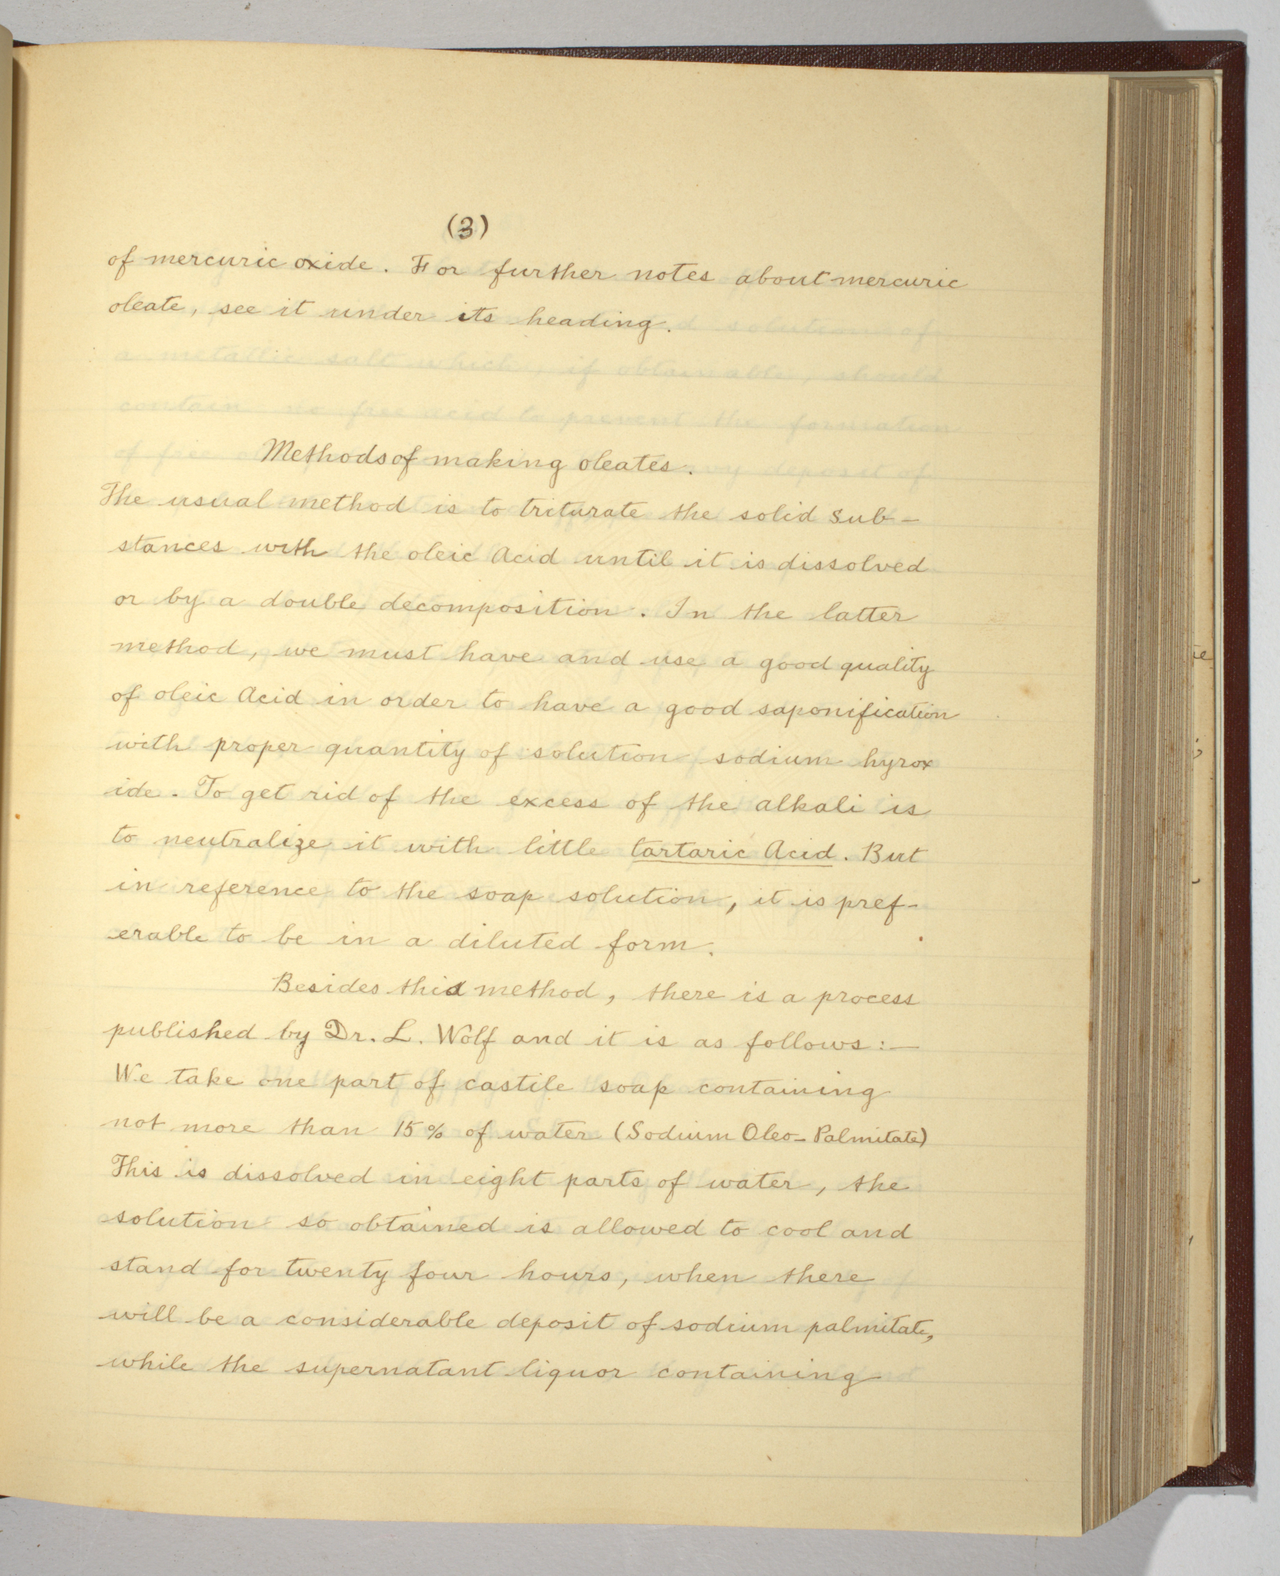 (3)
of mercuric oxide. For further notes about mercuric
oleate, see it under its heading.
Methods of making oleates.
The usual method is to triturate the solid sub-
stances with the oleic Acid until it is dissolved
or by a double decomposition. In the latter
method, we must have and use a good quality
of oleic Acid in order to have a good saponification
with proper quantity of solution sodium hyrox
ide. To get rid of the excess of the alkali is
to neutralize it with little tartaric Acid. But
in reference to the soap solution, it is pref-
erable to be in a diluted form.
Besides this method, there is a process
published by Dr. L. Wolf and it is as follows:—
We take one part of castile soap containing
not more than 15% of water (Sodium Oleo-Palmitate)
This is dissolved in eight parts of water, the
solution so obtained is allowed to cool and
stand for twenty four hours, when there
will be a considerable deposit of sodium palmitate,
while the supernatant liquor containing